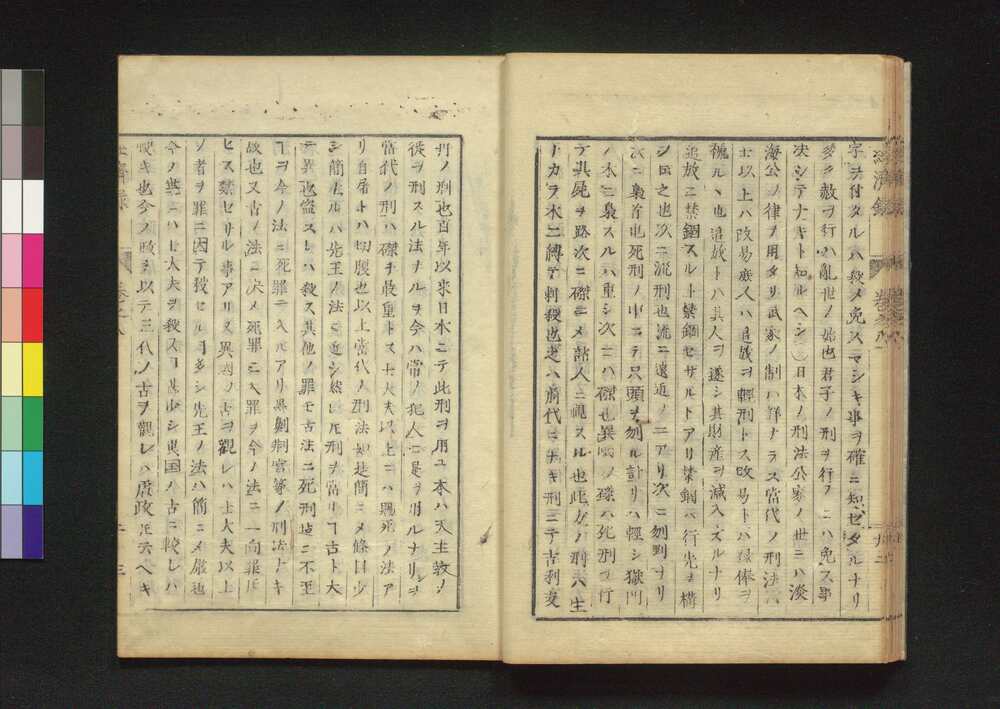 字ヲ付タルハ殺メ免スマシキ事ヲ確ニ知セタルナリ
多ク赦ヲ行ハ亂世ノ始也君子ノ刑ヲ行フニハ免ス事
決シテナキト知ルヘシ日本ノ刑法公家ノ世ニハ淡
海公ノ律ヲ用タリ武家ノ制ハ詳ナラス當代ノ刑法ハ
士以上ハ改易庶人ハ追放ヲ輕刑トス改易トハ禄俸ヲ
褫ルヽ也追放トハ其人ヲ逐シ其財産ヲ減入シスルナリ
追放ニ禁錮スルト禁錮セサルトアリ禁錮ハ行先ヲ構
シ也次ニ流刑也流ニ遠近ノ二アリ次ニ刎刑ヲリ
次ニ梟首也死刑ノ中ニテ只頭ヲ刎ル計リハ輕シ獄門
ノ木ニ梟スルハ重シ次ニハ磔也異國ノ磔ハ死刑ヲ行
テ其屍ヲ路次ニ磔ニメ諸人ニ視スル也此方ノ刑ハ生
トカラ木ニ縛テ刺殺也是ハ前代ニナキ刑ニテ吉利支
丹ノ刑也百年以来日本ニテ此刑ヲ用ユ本ハ天主教ノ
徒ヲ刑スル法ナルヲ今ハ常ノ犯人ニ是ヲ用ルナリ
當代ノ刑ハ磔ヲ最重トス士大夫以上ニハ賜死ノ法ア
リ自屠トハ切腹也以上當代ノ刑法如是簡ニメ條目少
シ簡ナルハ先王ノ法ニ近シ然レ𪜈刑ヲ當リ古ト大
ニ異也盗スレハ殺ス其他ノ罪モ古法ニ死刑ニ不至
ヿヲ今ノ法ニ死罪ニ入ルアリ墨劓剕宮等ノ刑法ナキ
故也又古ノ法ニ決メ死罪ニ入罪ヲ今ノ法ニ一向罪
ヒス禁セサル事アリ又異國ノ古ヲ觀レハ士大夫以上
ノ者ヲ罪ニ因テ殺セルヿ多シ先王ノ法ハ簡ニメ嚴也
今ノ世ニハ士大夫ヲ殺スヿ甚少シ異国ハ古ニ較レハ
キ也今ノ政ヲ以テ三代ノ古ヲ觀レハ虐政𪜈云ヘキ